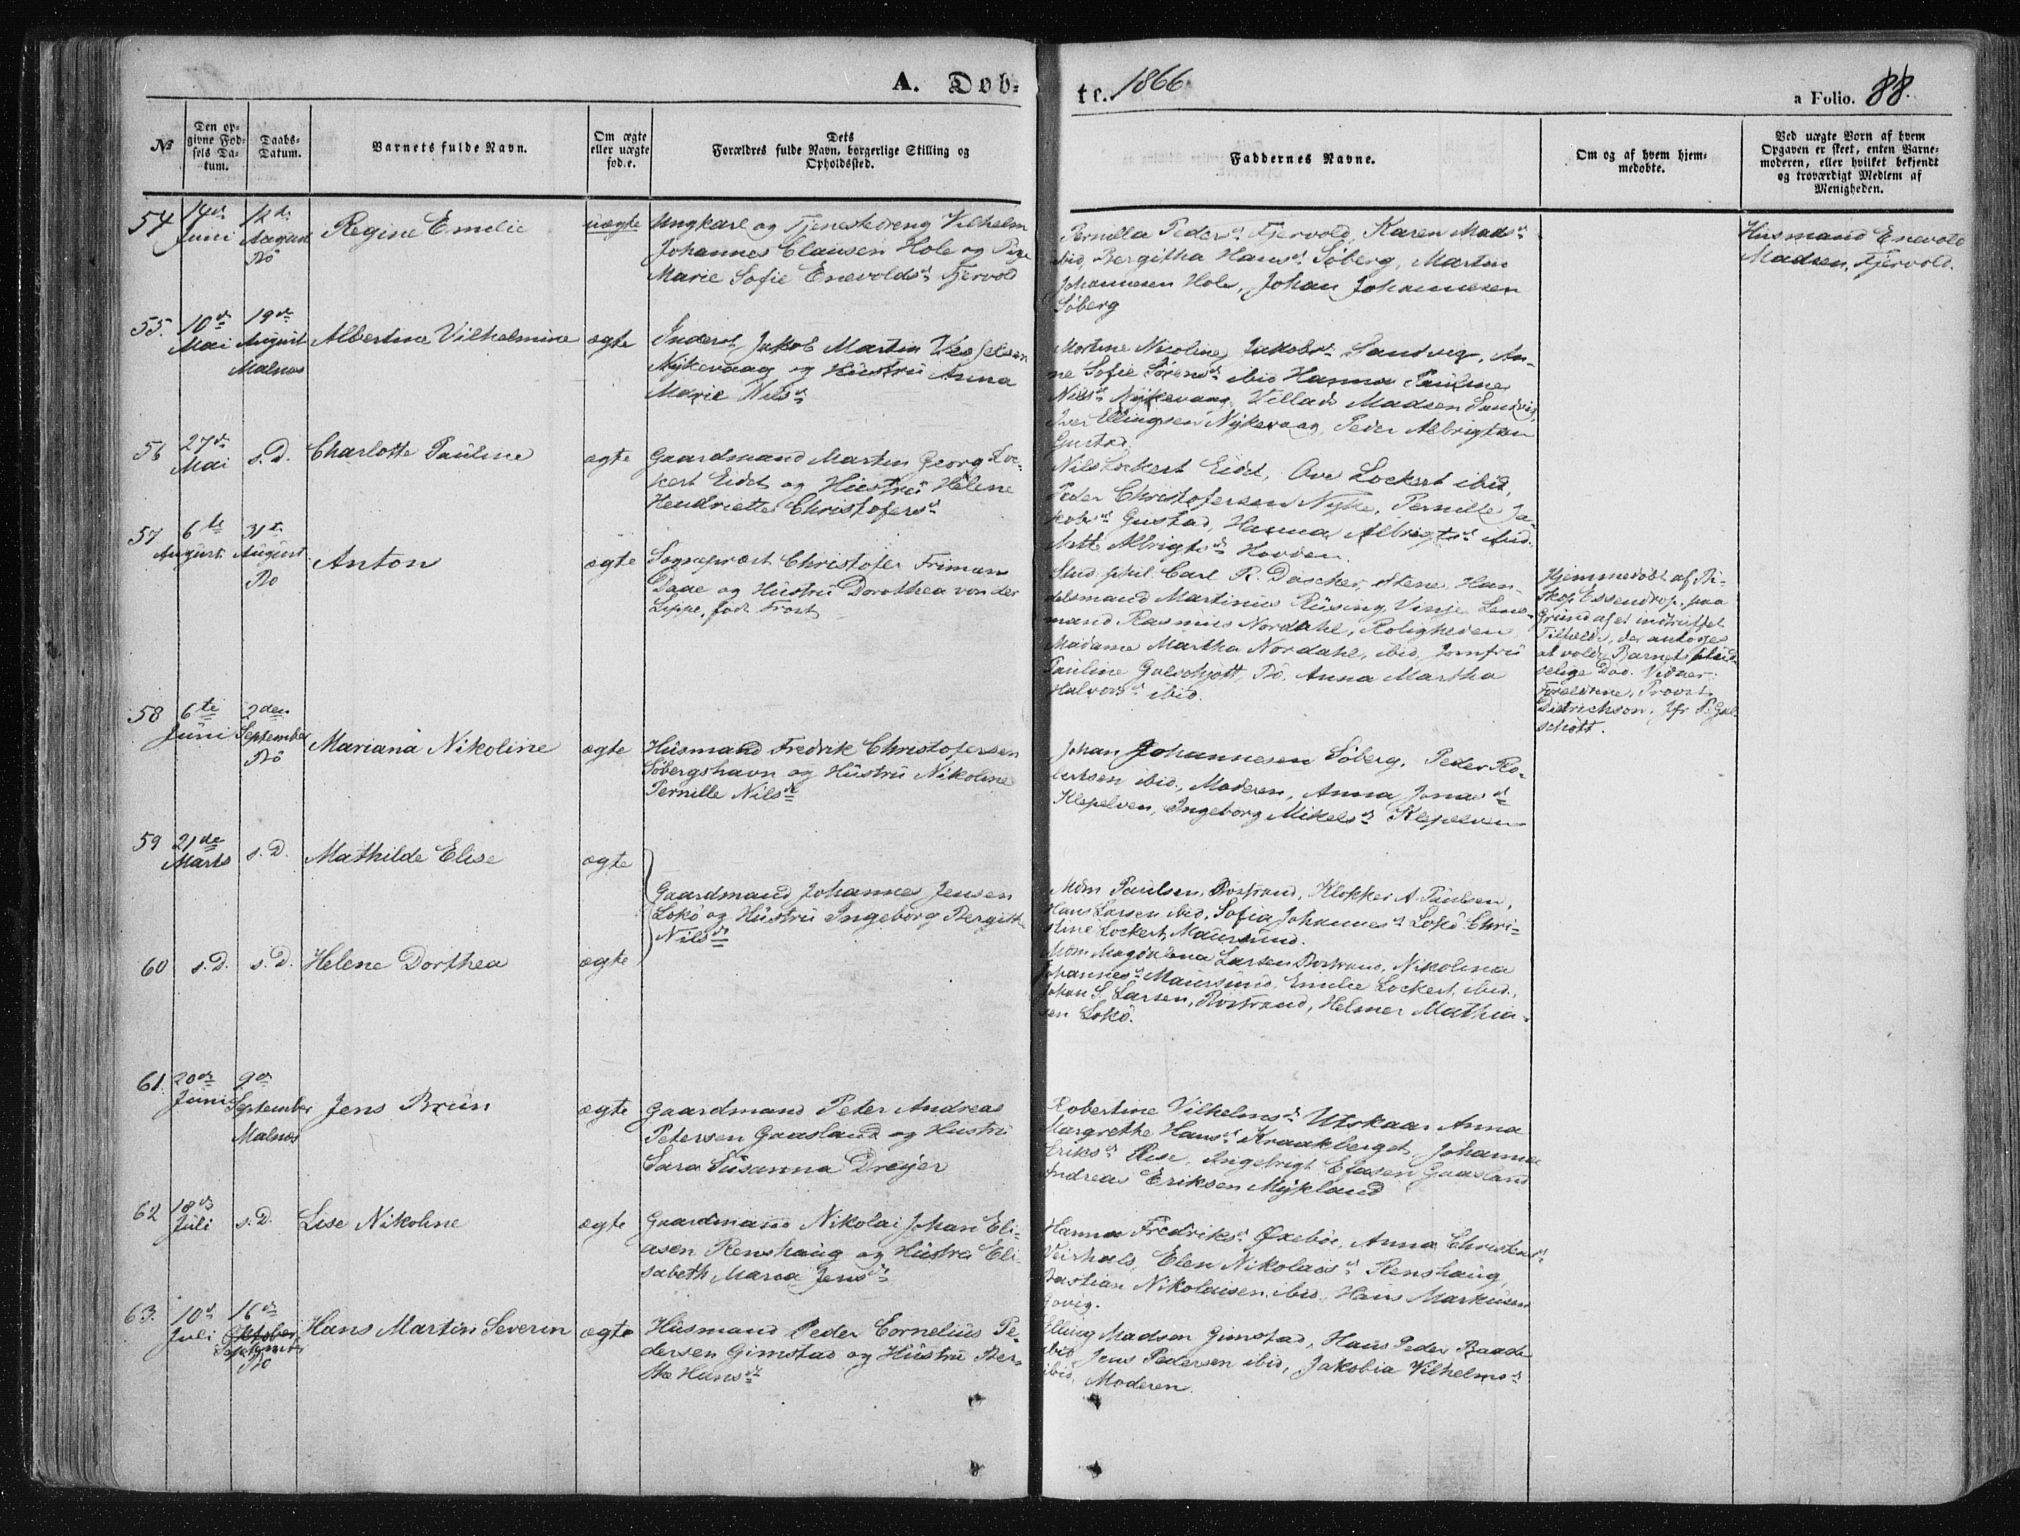 A. Døb-
te. 1866
a Folio. 88.
№
Den op-
givne Fød-
sels Da-
tum.
Daabs-
Datum.
Barnets fulde Navn.
Om ægte
eller uægte
fød.e.
Dets
Forældres fulde Navn, borgerlige Stilling og
Opholdssted.
Faddernes Navne.
Om og af hvem hjem-
medøbte.
Ved uægte Born af hvem
Opgaven er skeet, enten Barne-
moderen, eller hvilket bekjendt
og troværdigt Medlem af
Menigheden.
54 14de Juni
12te August Bö
Regine Emilie
uægte
Ungkarl og Tjenestedreng Vilhelm
Johannes Clausen Hole og Pige
Marie Sofie Enevoldsd. Fjervold
Pernilla Pedersd. Fjervold, Karen Madsd.
ibid, Bergitha Hansd. Söberg, Martin
Johannesen Hole, Johan Johannesen
Söberg
Husmand Enevold
Madsen, Fjervold.
55. 10de Mai
19de August Malnæs
Albertine Vilhelmine
ægte
Inderst Jakob Martin
Nykevaag og Hustru Anna
Marie Nilsd.
Martine Nicoline Jakobsd. Sandvig, An-
ne Sofie Sørensd. ibid Hanna Pauline
Nilsd. Nykevaag, Villads Madsen Sandvig,
Iver Ellingsen Nykevaag, Peder Albrigtsen
Gustad.
56 27de Mai
s. D.
Charlotte Pauline
ægte
Gaardmand Martin Georg Loc-
kert Eidet og Hustru Helene
Hendriette Christofersd.
Nils Lockert Eidet, Ove Lockert ibid,
Peder Christofersen Nyke, Pernille Ja-
kobsd. Gustad, Hanna Albrigtsd. ibid.
Mette Albrigtsd. Hovden.
57 6te August
31te August Bö
Anton
ægte
Sognepræst Christofer Friman
Daae og Hustru Dorothea von der
Lippe, född Frost
Stud. phil. Carl R. Dascher, Stene, Han-
delsmand Martinus Rüsing Vinje Lens-
mand Rasmus Nordahl, Roligheden
Madame Martha Nordahl, ibid, Jomfru
Pauline Galschjött, Bö. Anna Martha
Halvorsd. ibid.
Hjemmedöbt af Bi-
skop Essendrop, paa
Grund af et indtruffet
Tilfælde, der antoges
at volde Barnets
selige Död. Vidner:
Forældrene, Provst
Dietrichson, jfr P. Gal-
schött.
58 6te Juni
2den September Bö
Mariana Nikoline
ægte
Husmand Fredrik Christofersen
Söbergshavn og Hustru Nikoline
Pernille Nilsd.
Johan Johannesen Söberg, Peder Ro-
bertsen ibid., Moderen, Anna Jonasd.
Klepelven, Ingeborg Mikelsd. Klepelven
59 21de Marts
s. D.
Mathilde Elise
ægte
Gaardmand Johannes Jensen
Lokö og Hustru Ingeborg Bergitt
Nilsd.
Mdm Paulsen, Bostrand, Klokker A. Paulsen,
Hans Larsen ibid, Sofia Johannesd. Lokö Chri-
stine Lockert, Maursund.
60 s. D.
s. D.
Helene Dorthea
ægte
Mdm Magdalena Larsen Bostrand, Nikolina
Johannesd. Maursund, Emilie Lockert, ibid.,
Johan S. Larsen, Bostrand, Helmer Mathia-
sen Lokö.
61. 20de Juni
9de September Malnæs
Jens Brun
ægte
Gaardmand Peter Andreas
Petersen Gaasland og Hustru
Sara Susanna Dreyer
Robertine Vilhelmsd. Utskaar Anna
Margrethe Hansd. Kraakberget, Johanna
Eriksd. Rise, Ingebrigt Elesen Gaasland
Andreas Eriksen Mykland
62 18de Juli
s. D.
Lise Nikoline
ægte
Gaardmand Nikolai Johan Eli-
asen Renshaug og Hustru Eli-
sabeth Marea Jensd.
Hanna Fredriksd. Øxebøe, Anna Christensd.
Veirhals, Elen Nikolaisd. Renshaug,
Bastian Nikolaisen ibid, Hans Markusen
Hovig.
63. 10de Juli
16de Oktober September Bö
Hans Martin Severin
ægte
Husmand Peder Cornelius Pe-
dersen Gimstad og Hustru Ber-
the Hansd.
Elling Madsen Gimstad, Hans Peder Baade
ibid Jens Pedersen ibid, Jakobia Vilhelmsd.
ibid, Moderen.